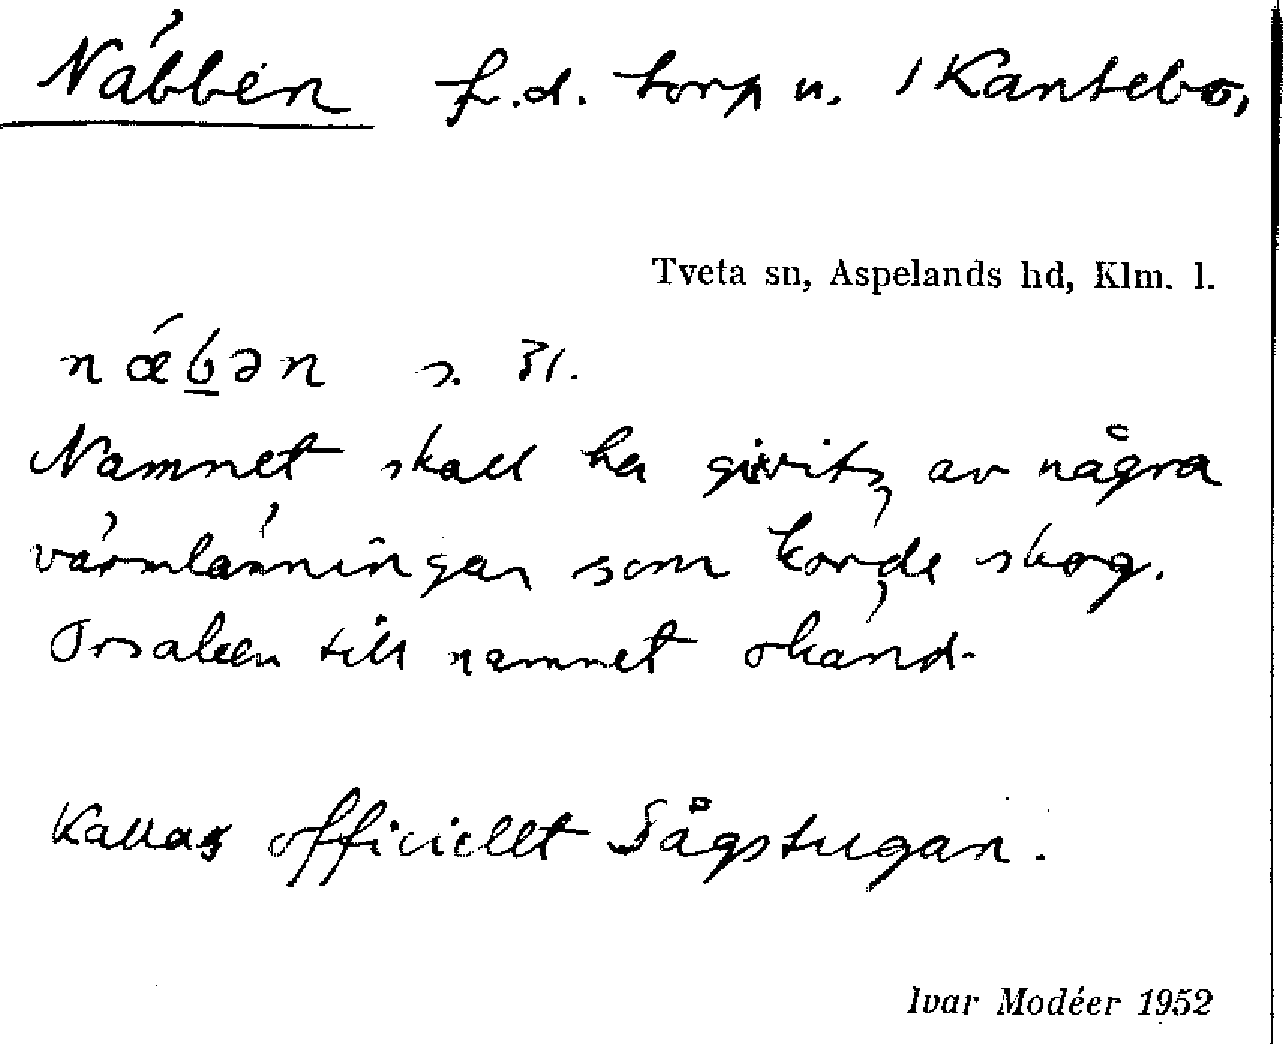 Näbben f.d. torp u. Kantebo,
Tveta sn, Aspelands hd, Klm. l.
næ̀bən s. 31.
Namnet skall ha givits av några
värmlänningar som körde skog.
Orsaken till namnet okänd.
Kallas officiellt Sågstugan.
Ivar Modéer 1952